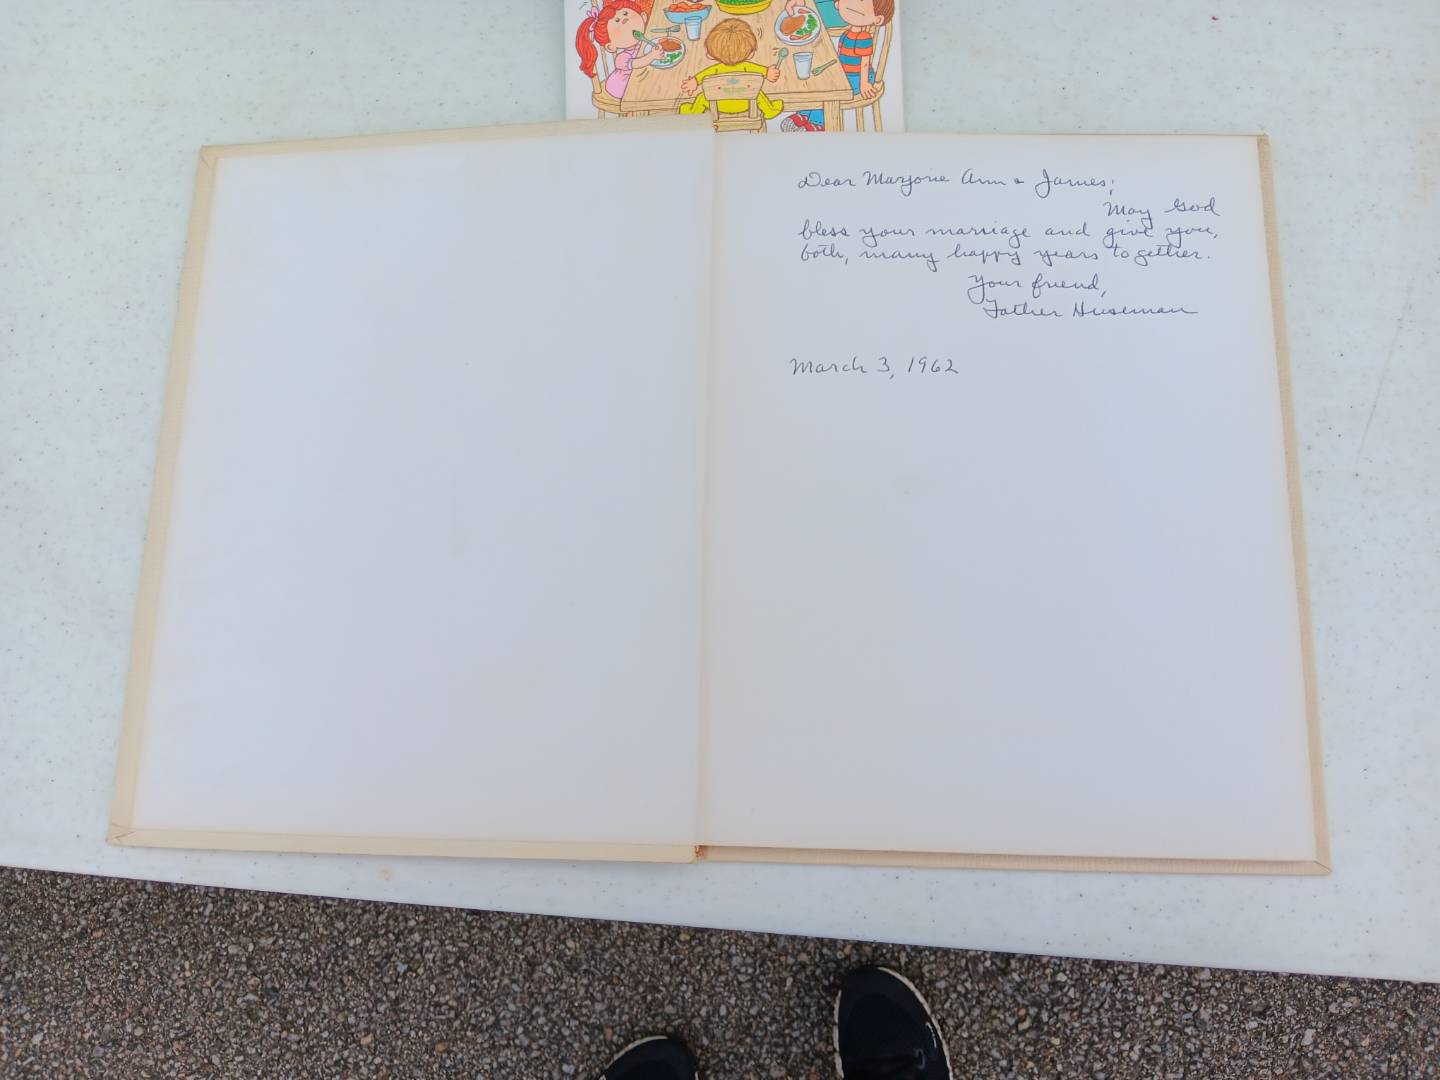 Dear Marjorie Ann & James;
May God
bless your marriage and give you,
both, many happy years together.
Your friend,
Father Huseman
March 3, 1962